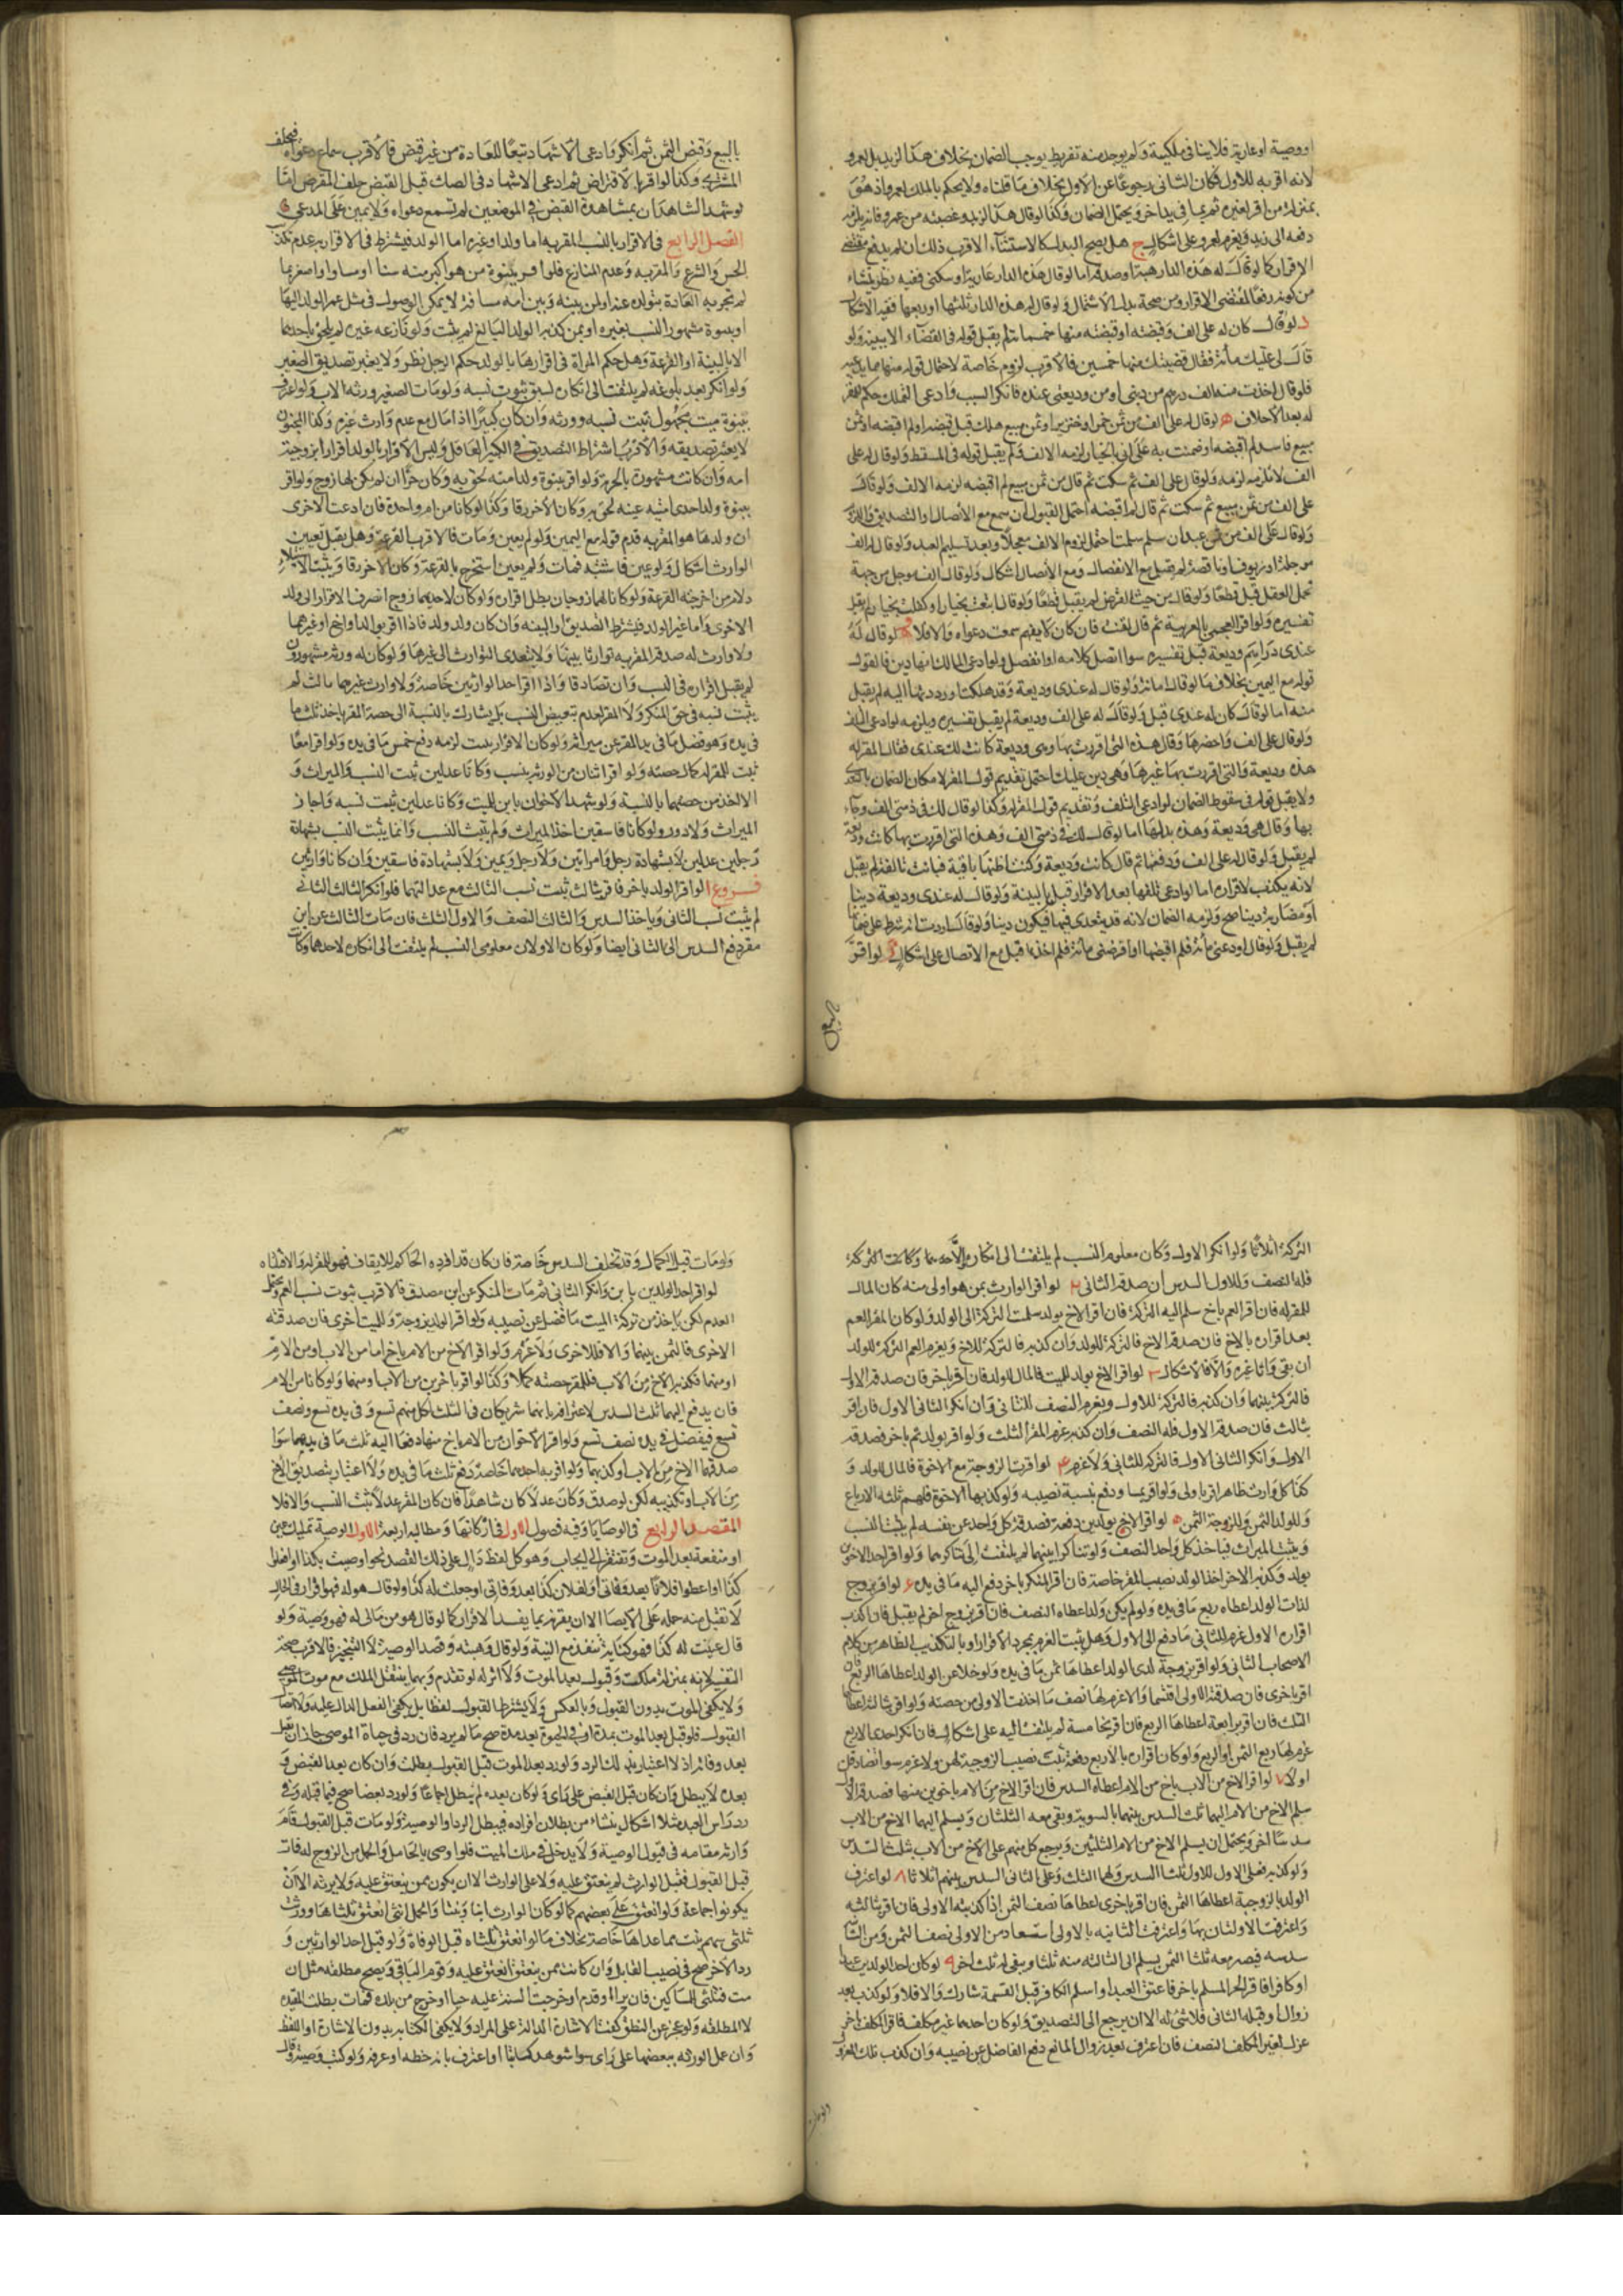 او وصية او عارية فلا ينافي ملكيته ولم يوجد منه تفريط يوجب الضمان بخلاف هذا لزيد بل لعمرو
لانه اقر به للاول فكان الثاني رجوعا عن الاول بخلاف ما قلناه ولا يحكم بالملك لعمرو اذ هو
بمنزلة من اقر لغيره ثم بما في يد اخر ويحتمل الضمان وكذا لو قال هذا لزيد وغصبته من عمرو فانه يلزمه
دفعه الى زيد ويغرم لعمرو على اشكال ج هل يصح البدل كالاستثناء الاقرب ذلك ان لم يرفع مقتضى
الاقرار كما لو قال له هذه الدار هبة او صدقة اما لو قال هذه الدار عارية او سكنى ففيه نظر ينشاء
من كونه رفعا لمقتضى الاقرار ومن صحة بدل الاشتمال ولو قال له هذه الدار ثلثها او ربعها ففيه الاشكال
د لو قال كان له على الف وقضيته او قبضته منها خمسمائة لم يقبل قوله في القضاء الا ببينة ولو
قال لي عليك مائة فقال قضيتك منها خمسين فالاقرب لزوم خاصة لاحتمال قوله منها مما يدعيه
فلو قال اخذت منه الف درهم من ديني او من وديعتي عنده فانكر السبب وادعى التملك حكم للمقر
له بعد الاحلاف ه لو قال له على الف من ثمن خمر او خنزير او ثمن مبيع هلك قبل قبضه او لم اقبضه او ثمن
مبيع فاسد لم اقبضه او ضمنت به على اني بالخيار لزمه الالف ولم يقبل قوله في المسقط ولو قال له على
الف لا تلزمه لزمه ولو قال على الف ثم سكت ثم قال من ثمن مبيع لم اقبضه لزمه الالف ولو قال
على الف من ثمن مبيع ثم سكت ثم قال لم اقبضه احتمل القبول ان سمع مع الاتصال او التصديق واللزوم
ولو قال على الف من ثمن عبد ان سلم سلمت احتمل لزوم الالف معجلا وبعد تسليم العبد ولو قال له الف
موجلة او زيوف او ناقصة لم يقبل مع الانفصال ومع الاتصال اشكال ولو قال الف موجل من جهة
تحمل العقل قبل قطعا ولو قال من حيث القرض لم يقبل قطعا ولو قال ابتعت بخيار او كفلت بخيار لم يقبل
تفسيره ولو اقر العجمي بالعربية ثم قال لقنت فان كان لا يفهم سمعت دعواه والا فلا و لو قال له
عندي دراهم وديعة قبل تفسيره سوا اتصل كلامه او انفصل ولو ادعى المالك انها دين فالقول
قوله مع اليمين بخلاف ما لو قال امانة ولو قال له عندي وديعة وقد هلكت او رددتها اليه لم يقبل
منه اما لو قال كان له عندي قبل ولو قال له على الف وديعة لم يقبل تفسيره ويلزمه لو ادعى التلف
ولو قال على الف واحضرها وقال هذه التي اقررت بها وهي وديعة كانت لك عندي فقال المقر له
هذه وديعة والتي اقررت بها غيرها وهي دين عليك احتمل تقديم قول المقر لامكان الضمان بالتعدي
ولا يقبل قوله في سقوط الضمان لو ادعى التلف وتقديم قول المقر له وكذا لو قال لك في ذمتي الف وجاء
بها وقال هي وديعة وهذه بدلها اما لو قال لك في ذمتي الف وهذه التي اقررت بها كانت وديعة
لم يقبل ولو قال له على الف ودفعها ثم قال كانت وديعة وكنت اظنها باقية فبانت تالفة لم يقبل
لانه يكذب لاقراره اما لو ادعى تلفها بعد الاقرار قبل بالبينة ولو قال له عندي وديعة دينا
او مضاربة دينا صح ولزمه الضمان لانه قد يتعدى فيها فيكون دينا ولو قال اردت انه شرط على ضمانها
لم يقبل ولو قال اودعني مائة فلم اقبضها او اقرضني مائة فلم اخذها قبل مع الاتصال على اشكال ز لو اقر
بالبيع
بالبيع وقبض الثمن ثم انكر وادعى الاشهاد تبعا للعادة من غير قبض فالاقرب سماع دعواه فيحلف
المشتري وكذا لو اقر بالاقتراض ثم ادعى الاشهاد في الصك قبل القبض حلف المقرض اما
لو شهد الشاهدان بمشاهدة القبض في الموضعين لم تسمع دعواه ولا يمين على المدعي
الفصل الرابع في الاقرار بالنسب المقر به اما ولد او غيره اما الولد فيشترط في الاقرار به عدم تكذيب
الحس والشرع والمقر به وعدم المنازع فلو اقر ببنوة من هو اكبر منه سنا او مساو او اصغر بما
لم تجر به العادة بتولده عنه او لمن بينه وبين امه مسافة لا يمكن الوصول في مثل عمر الولد اليها
او ببنوة مشهور النسب بغيره او بمن كذبه الولد البالغ لم يثبت ولو نازعه غيره لم يلحق باحدهما
الا بالبينة او القرعة وهل حكم المراة في اقرارها بالولد حكم الرجل نظر ولا يعتبر تصديق الصغير
ولو انكر بعد بلوغه لم يلتفت الى انكاره لسبق ثبوت نسبه ولو مات الصغير ورثه الاب ولو اعترف
ببنوة ميت مجهول ثبت نسبه وورثه وان كان كبيرا ذا مال مع عدم وارث غيره وكذا المجنون
لا يعتبر تصديقه والاقرب اشتراط التصديق في الكبير العاقل وليس الاقرار بالولد اقرارا بزوجية
امه وان كانت مشهورة بالحرية ولو اقر ببنوة ولد امته لحق به وكان حرا ان لم يكن لها زوج ولو اقر
ببنوة ولد احدى امتيه عينه لحق به وكان الاخر رقا وكذا لو كانا من ام واحدة فان ادعت الاخرى
ان ولدها هو المقر به قدم قوله مع اليمين ولو لم يعين ومات فالاقرب القرعة وهل يقبل تعيين
الوارث اشكال ولو عين فاشتبه فمات ولم يعين استخرج بالقرعة وكان الاخر رقا ويثبت الاستيلاد
لام من اخرجته القرعة ولو كانا لهما زوجان بطل اقراره ولو كان لاحديهما زوج انصرف الاقرار الى ولد
الاخرى واما غير الولد فيشترط التصديق او البينة وان كان ولد ولد فاذا اقر بوالد او اخ او غيرهما
ولا وارث له صدقه المقر به توارثا بينهما ولا يتعدى التوارث الى غيرهما ولو كان له ورثة مشهورون
لم يقبل اقراره في النسب وان تصادقا واذا اقر احد الوارثين خاصة ولا وارث غيرهما بثالث لم
يثبت نسبه في حق المنكر ولا المقر لعدم تبعيض النسب بل يشارك بالنسبة الى حصة المقر ياخذ ثلث ما
في يده وهو فضل ما في يد المقر عن ميراثه ولو كان الاقرار ببنت لزمه دفع خمس ما في يده ولو اقرا معا
ثبت للمقر له كمال حصته ولو اقر اثنان من الورثة بنسب وكانا عدلين ثبت النسب والميراث و
الا اخذ من حصتهما بالنسبة ولو شهد الاخوان بابن للميت وكانا عدلين ثبت نسبه واحاز
الميراث ولا دور ولو كانا فاسقين اخذ الميراث ولم يثبت النسب وانما يثبت النسب بشهادة
رجلين عدلين لا بشهادة رجل وامراتين ولا رجل ويمين ولا بشهادة فاسقين وان كانا وارثين
فروع ا لو اقر الولد باخر فاقر بثالث ثبت نسب الثالث مع عدالتهما فلو انكر الثالث الثاني
لم يثبت نسب الثاني وياخذ السدس والثالث النصف والاول الثلث فان مات الثالث عن ابن
مقر دفع السدس الى الثاني ايضا ولو كان الاولان معلومي النسب لم يلتفت الى انكاره لاحدهما وكانت
التركة اثلاثا ولو انكر الاول وكان معلوم النسب لم يلتفت الى انكاره وكانت التركة
فله النصف وللاول السدس ان صدقه الثاني ٢ لو اقر الوارث بمن هو اولى منه كان المال
للمقر له فان اقر العم باخ سلم اليه التركة فان اقر الاخ بولد سلمت التركة الى الولد ولو كان المقر العم
بعد اقراره بالاخ فان صدقه الاخ فالتركة للولد وان كذبه فالتركة للاخ ويغرم العم التركة للولد
ان نفى وارثا غيره والا فالاشكال ٣ لو اقر الاخ بولد للميت فالمال للولد فان اقر باخر فان صدقه الاول
فالتركة بينهما وان كذبه فالتركة للاول ويغرم النصف للثاني وان انكر الثاني الاول فان اقر
بثالث فان صدقه الاول فله النصف وان كذبه غرم المقر الثلث ولو اقر بولد ثم باخر فصدقه
الاول وانكر الثاني الاول فالتركة للثاني ولا غرم ٤ لو اقرت الزوجة مع الاخوة فالمال للولد و
كذا كل وارث ظاهر اقر باولى ولو اقر بمساو دفع بنسبة نصيبه ولو كذبها الاخوة فلهم ثلثة الارباع
وللولد الثمن وللزوجة الثمن ٥ لو اقر الاخ بولدين دفعة فصدقه كل واحد عن نفسه لم يثبت النسب
ويثبت الميراث فياخذ كل واحد النصف ولو تناكرا بينهما لم يلتفت الى تناكرهما ولو اقر احد الاخوين
بولد وكذبه الاخر اخذ الولد نصيب المقر خاصة فان اقر المنكر باخر دفع اليه ما في يده ٦ لو اقر بزوج
لذات الولد اعطاه ربع ما في يده ولو لم يكن ولد اعطاه النصف فان اقر بزوج اخر لم يقبل فان اكذب
اقراره الاول غرم للثاني ما دفع الى الاول وهل يثبت الغرم بمجرد الاقرار او بالتكذيب الظاهر من كلام
الاصحاب الثاني ولو اقر بزوجة لذي الولد اعطاها ثمن ما في يده ولو خلا عن الولد اعطاها الربع فان
اقر باخرى فان صدقته الاولى اقتسما والا غرم لها نصف ما اخذت الاولى من حصته ولو اقر بثالثة اعطاها
الثلث فان اقر برابعة اعطاها الربع فان اقر بخامسة لم يلتفت اليه على اشكال فان انكر احدى الاربع
غرم لها ربع الثمن او الربع ولو كان اقراره بالاربع دفعة ثبت نصيب الزوجية لهن ولا غرم سوا تصادقن
اولا ٧ لو اقر الاخ من الاب باخ من الام اعطاه السدس فان اقر الاخ من الام باخوين منها فصدقه الاول
سلم الاخ من الام اليهما ثلث السدس بينهما بالسوية ويبقى معه الثلثان ويسلم اليهما الاخ من الاب
سدسا اخر ويحتمل ان يسلم الاخ من الام الثلثين ويرجع كل منهم على الاخ من الاب بثلث السدس
ولو كذبه فعلى الاول للاول ثلثا السدس ولهما الثلث وعلى الثاني السدس بينهم اثلاثا ٨ لو اعترف
الولد بالزوجية اعطاها الثمن فان اقر باخرى اعطاها نصف الثمن اذا كذبته الاولى فان اقر بثالثة
واعترفت الاولتان بها واعترفت الثانية بالاولى استعاد من الاولى نصف الثمن ومن الثانية
سدسه فيصير معه ثلثا الثمن يسلم الى الثالثة منه ثلثا ويبقى له ثلث اخر ٩ لو كان احد الولدين عبدا
او كافرا فاقر الحر المسلم باخر فاعتق العبد او اسلم الكافر قبل القسمة شارك والا فلا ولو كذب بعد
زوال او قبله الثاني فلا شيء له الا ان يرجع الى التصديق ولو كان احدهما غير مكلف فاقر المكلف باخر
عزل لغير المكلف النصف فان اعترف بعد زوال المانع دفع الفاضل عن نصيبه وان كذب ملك المعزول
ولو مات
ولو مات قبل الكمال وقد تخلف السدس خاصة فان كان قد افرده الحاكم للايقاف فهو للمقر له والا فثلثاه
لو اقر احد الولدين بابن وانكر الثاني ثم مات المنكر عن ابن مصدق فالاقرب ثبوت نسب العم ويحتمل
العدم لكن ياخذ من تركة الميت ما فضل عن نصيبه ولو اقر الولد بزوجة وللميت اخرى فان صدقته
الاخرى فالثمن بينهما والا فللاخرى ولا غرم ولو اقر الاخ من الام باخ اما من الاب او من الام
او منهما فكذبه الاخ من الاب فللمقر حصته كملا وكذا لو اقر باخوين من الاب او منهما ولو كانا من الام
فان يدفع اليهما ثلث السدس لاعترافه بانهما شريكان في الثلث لكل منهم تسع وفي يده تسع ونصف
تسع فيفضل في يده نصف تسع ولو اقر الاخوان من الام باخ منها دفعا اليه ثلث ما في يدهما سوا
صدقهما الاخ من الاب او كذبهما ولو اقر به احدهما خاصة دفع ثلث ما في يده ولا اعتبار بتصديق الاخ
من الاب او تكذيبه لكن لو صدق وكان عدلا كان شاهدا فان كان المقر عدلا ثبت النسب والا فلا
المقصد الرابع في الوصايا وفيه فصول الاول في اركانها ومطالبه اربعة الاول الوصية تمليك عين
او منفعة بعد الموت وتفتقر الى ايجاب وهو كل لفظ دال على ذلك القصد نحو اوصيت بكذا او افعلوا
كذا او اعطوا فلانا بعد وفاتي او لفلان كذا بعد وفاتي او جعلت له كذا ولو قال هو له فهو اقرار في الحال
لا تقبل منه حمله على الايصا الا ان يقرنه بما يفسد الاقرار كما لو قال هو من مالي له فهو وصية ولو
قال عينت له كذا فهو كناية تنفذ مع النية ولو قال وهبته وقصد الوصية لا التنجيز فالاقرب صحة
التفسير لانه بمنزلة ملكت وقبول بعد الموت ولا اثر له لو تقدم وبهما ينتقل الملك مع موت الموصي
ولا يكفي الموت بدون القبول وبالعكس ولا يشترط القبول لفظا بل يكفي الفعل الدال عليه ولا اتصال
القبول فلو قبل بعد الموت بمدة او في الحيوة بعد مدة صح ما لم يرد فان رد في حياة الموصي جاز ان يقبل
بعد وفاته اذ لا اعتبار بذلك الرد ولو رد بعد الموت قبل القبول بطلت وان كان بعد القبض و
بعده لا يبطل وان كان قبل القبض على راى ولو كان بعده لم يبطل اجماعا ولو رد بعضا صح فيما قبله وفي
رد راس العبد مثلا اشكال ينشاء من بطلان افراده فيبطل الرد او الوصية ولو مات قبل القبول قام
وارثه مقامه في قبول الوصية ولا يدخل في ملك الميت فلو اوصى بالحامل والحمل من الزوج له فمات
قبل القبول فقبل الوارث لم ينعتق عليه ولا على الوارث الا ان يكون ممن ينعتق عليه ولا يرثه الا ان
يكونوا جماعة ولو انعتق على بعضهم كما لو كان الوارث ابنا وبنتا والحمل انثى انعتق ثلثاها وورثت
ثلثي سهم بنت مما عداها خاصة بخلاف ما لو انعتق ثلثاه قبل الوفاة ولو قبل احد الوارثين و
رد الاخر صح في نصيب القابل وان كانت ممن ينعتق انعتق عليه وقوم الباقي ويصح مطلقة مثل ان
مت فثلثي للمساكين فان برا او قدم او خرجت السنة عليه حيا او خرج من بلده فمات بطلت المقيدة
لا المطلقة ولو عجز عن النطق كفت الاشارة الدالة على المراد ولا يكفي الكتابة بدون الاشارة او اللفظ
وان عمل الورثة ببعضها على راى سوا شوهد كاتبا او اعترف بانه خطه او عرف ولو كتب وصية وقال